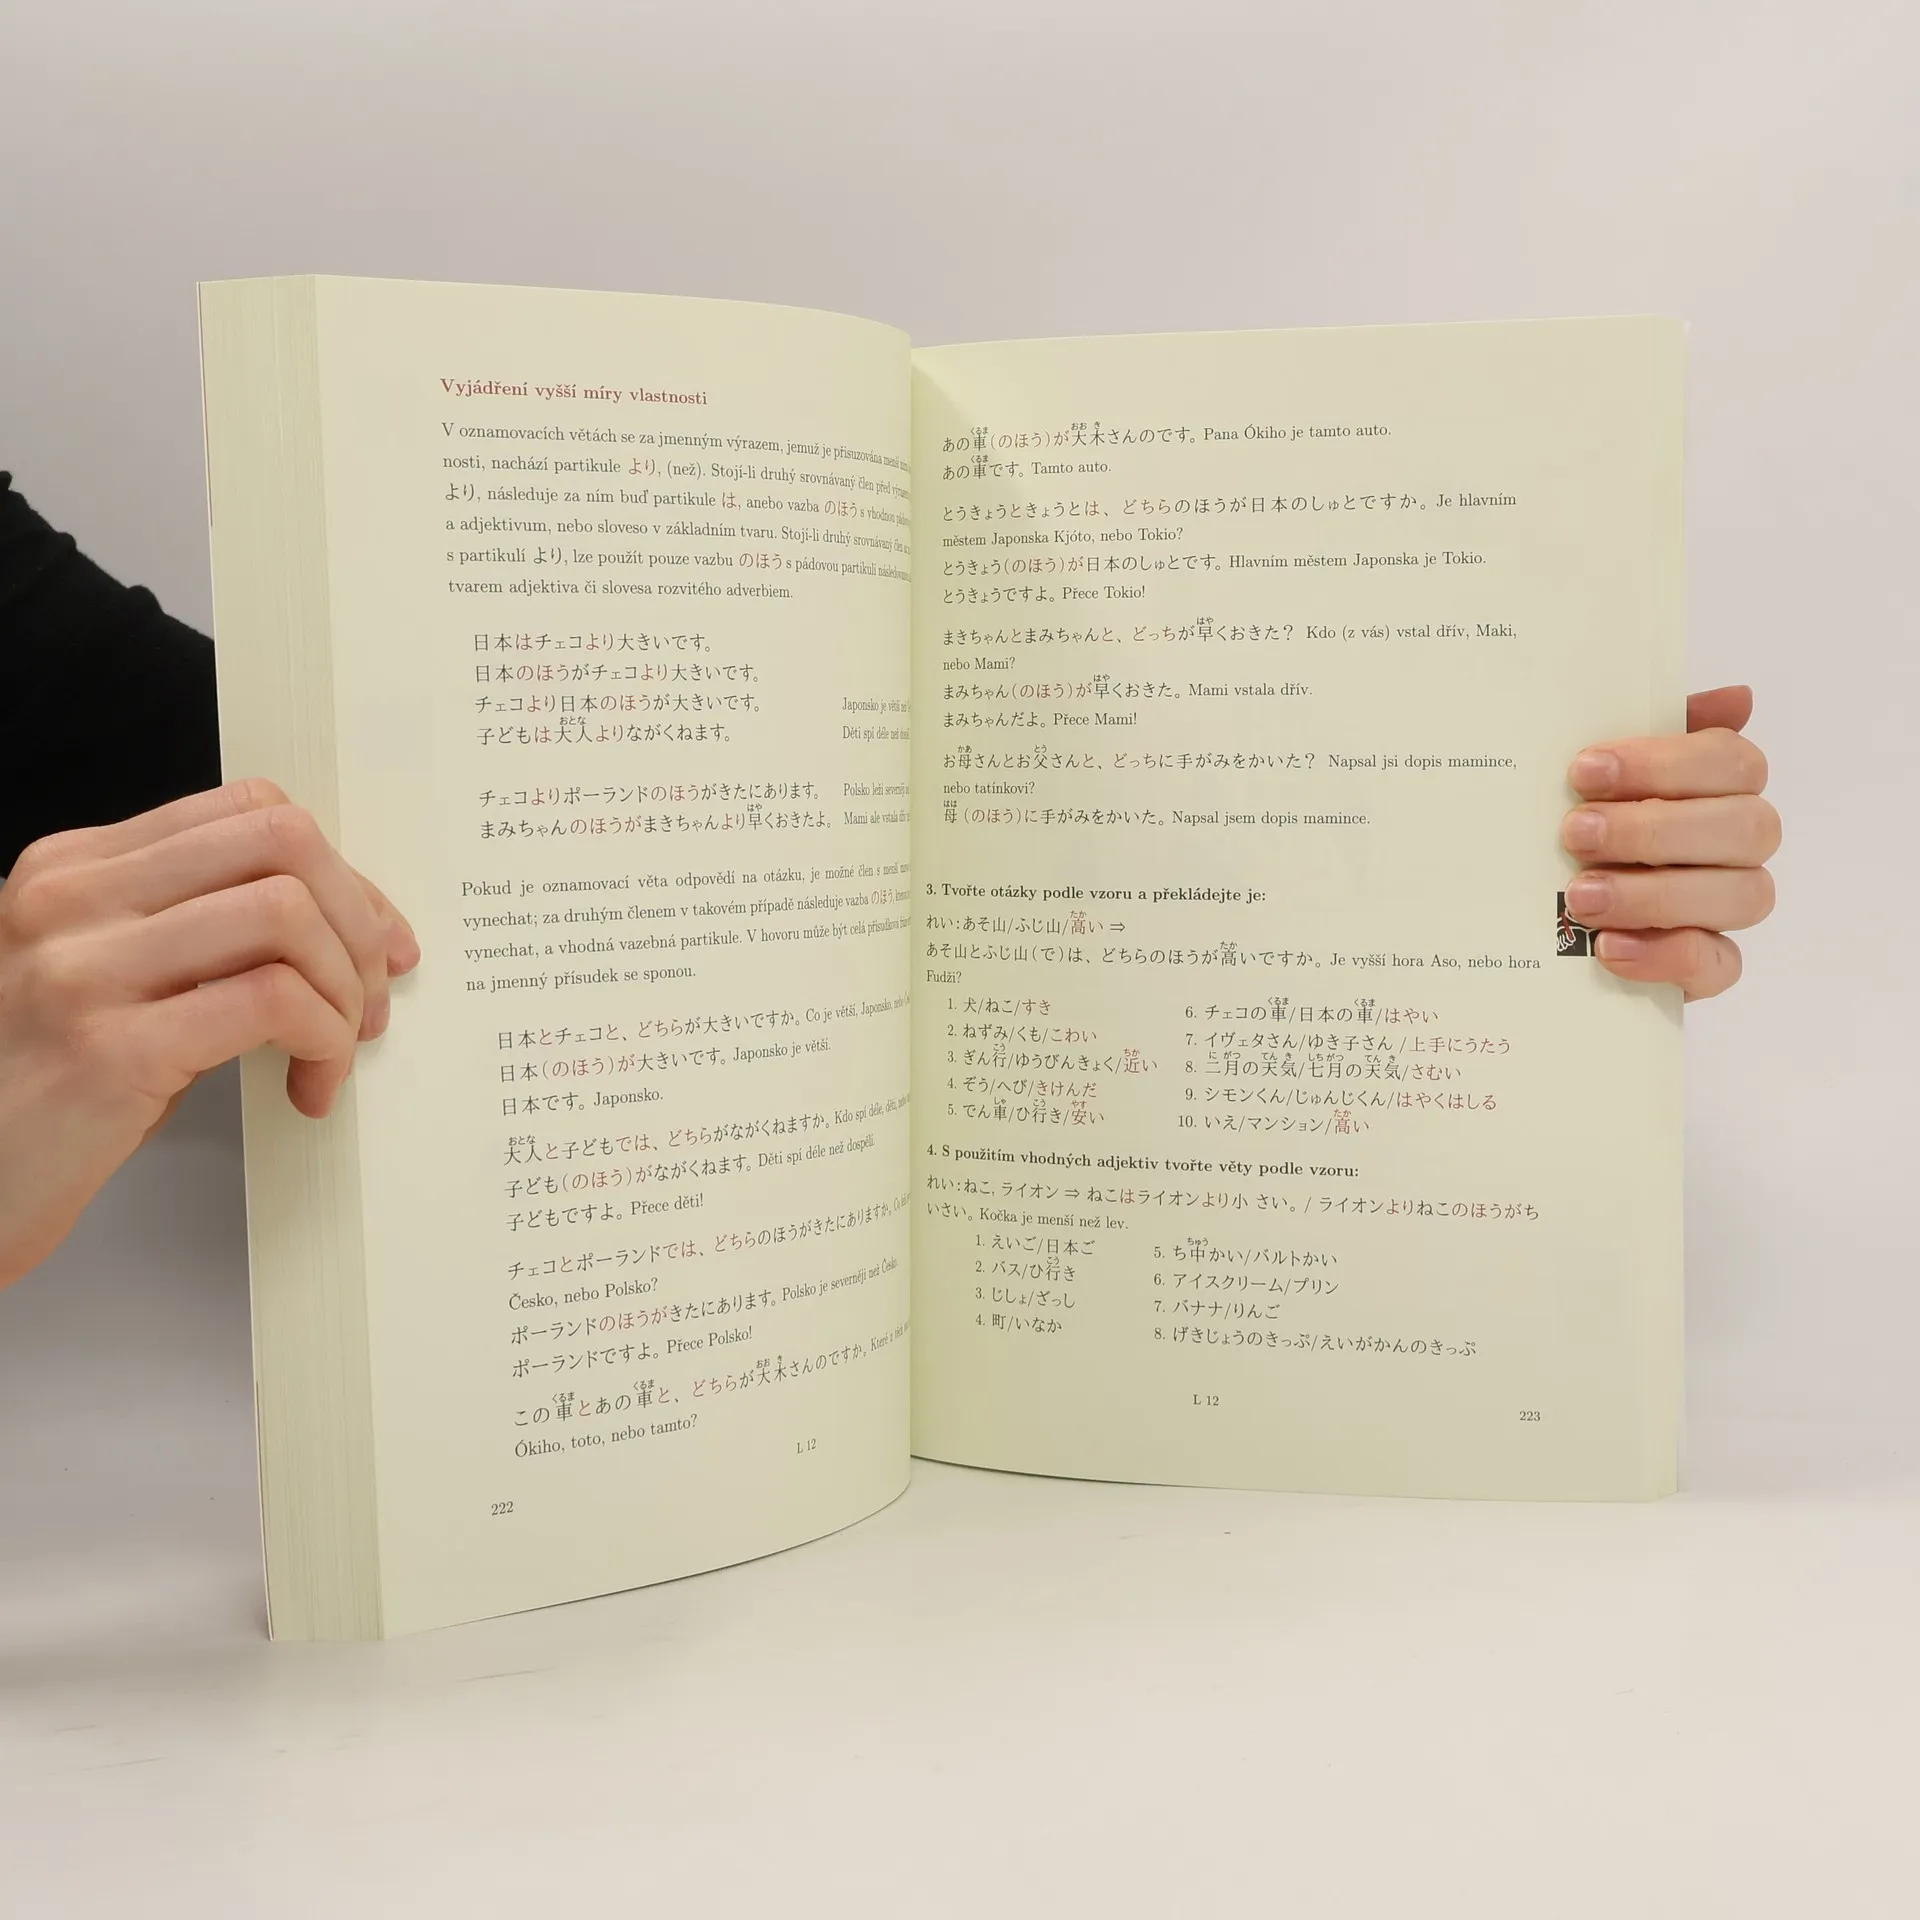 Vyjádření vyšší míry vlastnosti
V oznamovacích větách se za jmenným výrazem, jemuž je přisuzována menší
nosti, nachází partikule より, (než). Stojí-li druhý srovnávaný člen před
より, následuje za ním buď partikule は, anebo vazba のほう s vhodnou
a adjektivum, nebo sloveso v základním tvaru. Stojí-li druhý srovnávaný člen
s partikulí より, lze použít pouze vazbu のほう s pádovou partikulí
tvarem adjektiva či slovesa rozvitého adverbiem.
日本はチェコより大きいです。
日本のほうがチェコより大きいです。
チェコより日本のほうが大きいです。 Japonsko je větší než
子どもは大人よりながくねます。 Děti spí déle než
おとな
チェコよりポーランドのほうがきたにあります。 Polsko leží severněji
はや
まみちゃんのほうがまきちゃんより早くおきたよ。 Mami ale vstala dřív
Pokud je oznamovací věta odpovědí na otázku, je možné člen s menší
vynechat; za druhým členem v takovém případě následuje vazba のほう,
vynechat, a vhodná vazebná partikule. V hovoru může být celá přísudková
na jmenný přísudek se sponou.
日本とチェコと、どちらが大きいですか。Co je větší, Japonsko, nebo
日本(のほう)が大きいです。Japonsko je větší.
日本です。Japonsko.
おとな
大人と子どもでは、どちらがながくねますか。Kdo spí déle, děti, nebo
子ども(のほう)がながくねます。Děti spí déle než dospělí.
子どもですよ。Přece děti!
チェコとポーランドでは、どちらのほうがきたにありますか。Co
Česko, nebo Polsko?
ポーランドのほうがきたにあります。Polsko je severněji než Česko.
ポーランドですよ。Přece Polsko!
くるま くるま おお き
この車とあの車と、どちらが大木さんのですか。Které z těch
Ókiho, toto, nebo tamto?
L 12
222
くるま おお き
あの車(のほう)が大木さんのです。Pana Ókiho je tamto auto.
くるま
あの車です。Tamto auto.
とうきょうときょうとは、どちらのほうが日本のしゅとですか。Je hlavním
městem Japonska Kjóto, nebo Tokio?
とうきょう(のほう)が日本のしゅとです。Hlavním městem Japonska je Tokio.
とうきょうですよ。Přece Tokio!
はや
まきちゃんとまみちゃんと、どっちが早くおきた? Kdo (z vás) vstal dřív, Maki,
nebo Mami?
はや
まみちゃん(のほう)が早くおきた。Mami vstala dřív.
まみちゃんだよ。Přece Mami!
かあ とう
お母さんとお父さんと、どっちに手がみをかいた? Napsal jsi dopis mamince,
nebo tatínkovi?
はは
母(のほう)に手がみをかいた。Napsal jsem dopis mamince.
3. Tvořte otázky podle vzoru a překládejte je:
たか
れい:あそ山/ふじ山/高い ⇒
たか
あそ山とふじ山(で)は、どちらのほうが高いですか。Je vyšší hora Aso, nebo hora
Fudži?
1. 犬/ねこ/すき
2. ねずみ/くも/こわい
こう ちか
3. ぎん行/ゆうびんきょく/近い
4. ぞう/へび/きけんだ
しゃ こう やす
5. でん車/ひ行き/安い
くるま くるま
6. チェコの車/日本の車/はやい
7. イヴェタさん/ゆき子さん /上手にうたう
に がつ てん き しちがつ てん き
8. 二月の天気/七月の天気/さむい
9. シモンくん/じゅんじくん/はやくはしる
たか
10. いえ/マンション/高い
4. S použitím vhodných adjektiv tvořte věty podle vzoru:
れい:ねこ, ライオン ⇒ ねこはライオンより小 さい。/ ライオンよりねこのほうがち
いさい。Kočka je menší než lev.
1. えいご/日本ご
こう
2. バス/ひ行き
3. じしょ/ざっし
4. 町/いなか
ちゅう
5. ち中かい/バルトかい
6. アイスクリーム/プリン
7. バナナ/りんご
8. げきじょうのきっぷ/えいがかんのきっぷ
L 12
223